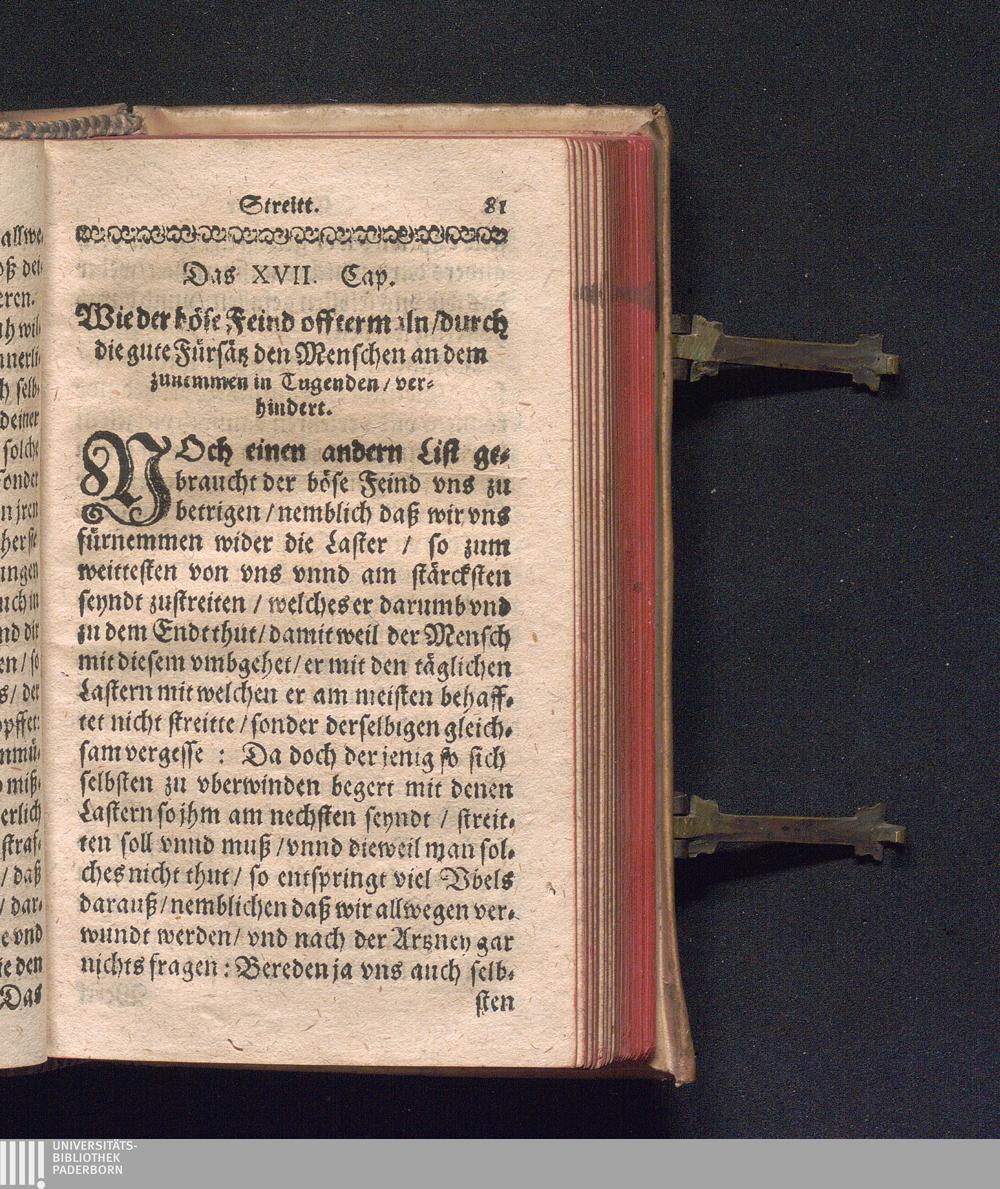 Streitt. 81
Das XVII. Cap.
Wie der böse Feind offtermaln/durch
die gute Fürsätz den Menschen an dem
zunemmen in Tugenden/ver-
hindert.
NOch einen andern List ge-
braucht der böse Feind vns zu
betrigen/nemblich daß wir vns
fürnemmen wider die Laster / so zum
weittesten von vns vnnd am stärcksten
seyndt zustreiten / welches er darumb vnd
zu dem Endt thut/damit weil der Mensch
mit diesem vmbgehet/er mit den täglichen
Lastern mit welchen er am meisten behaff-
tet nicht streitte/sonder derselbigen gleich-
sam vergesse : Da doch der jenig so sich
selbsten zu vberwinden begert mit denen
Lastern so jhm am nechsten seyndt / streit-
ten soll vnnd muß/vnnd dieweil man sol-
ches nicht thut/ so entspringt viel Vbels
darauß/nemblichen daß wir allwegen ver-
wundt werden/ vnd nach der Artzney gar
nichts fragen: Bereden ja vns auch selb-
sten
allwe-
den
eren.
selb-
deiner
solche
sonder
n jren
ungen
nd dir
en/so
s/ der
miß-
erlich
straf-
/ daß
/ dar-
e vnd
ie den
Das
UNIVERSITÄTS-
BIBLIOTHEK
PADERBORN